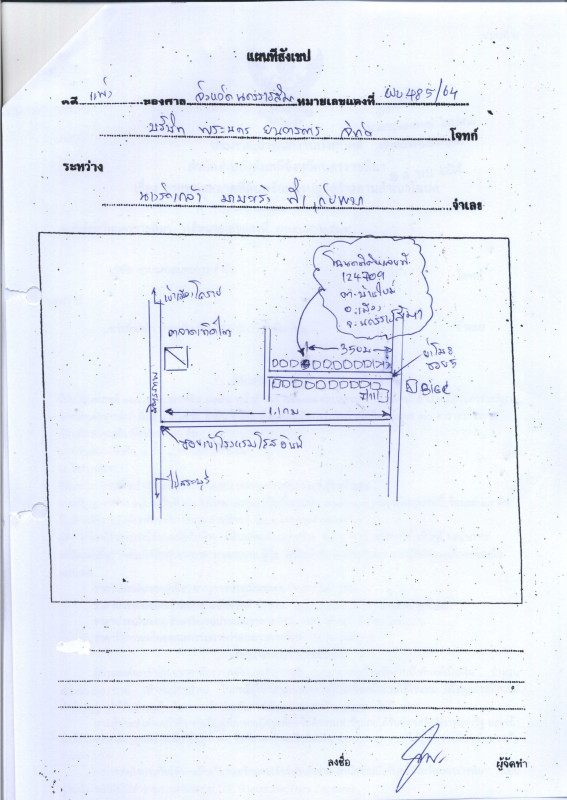 แผนที่สังเขป
คดี แพ่ง ของศาล จังหวัดนครราชสีมา หมายเลขแดงที่ ผบ 485/64
บริษัท พระนคร ยนตรการ จำกัด โจทก์
ระหว่าง
จำเลย
โฉนดที่ดินเลขที่
124709
ต.บ้านใหม่
อ.เมือง
จ.นครราชสีมา
เข้าเมืองโคราช
350ม
ซอย 5
Big C
7-11
ถนนมิตรภาพ
1.1 กม
ซอยเข้าโรงแรมโรสอินน์
ไปสระบุรี
ลงชื่อ ผู้จัดทำ